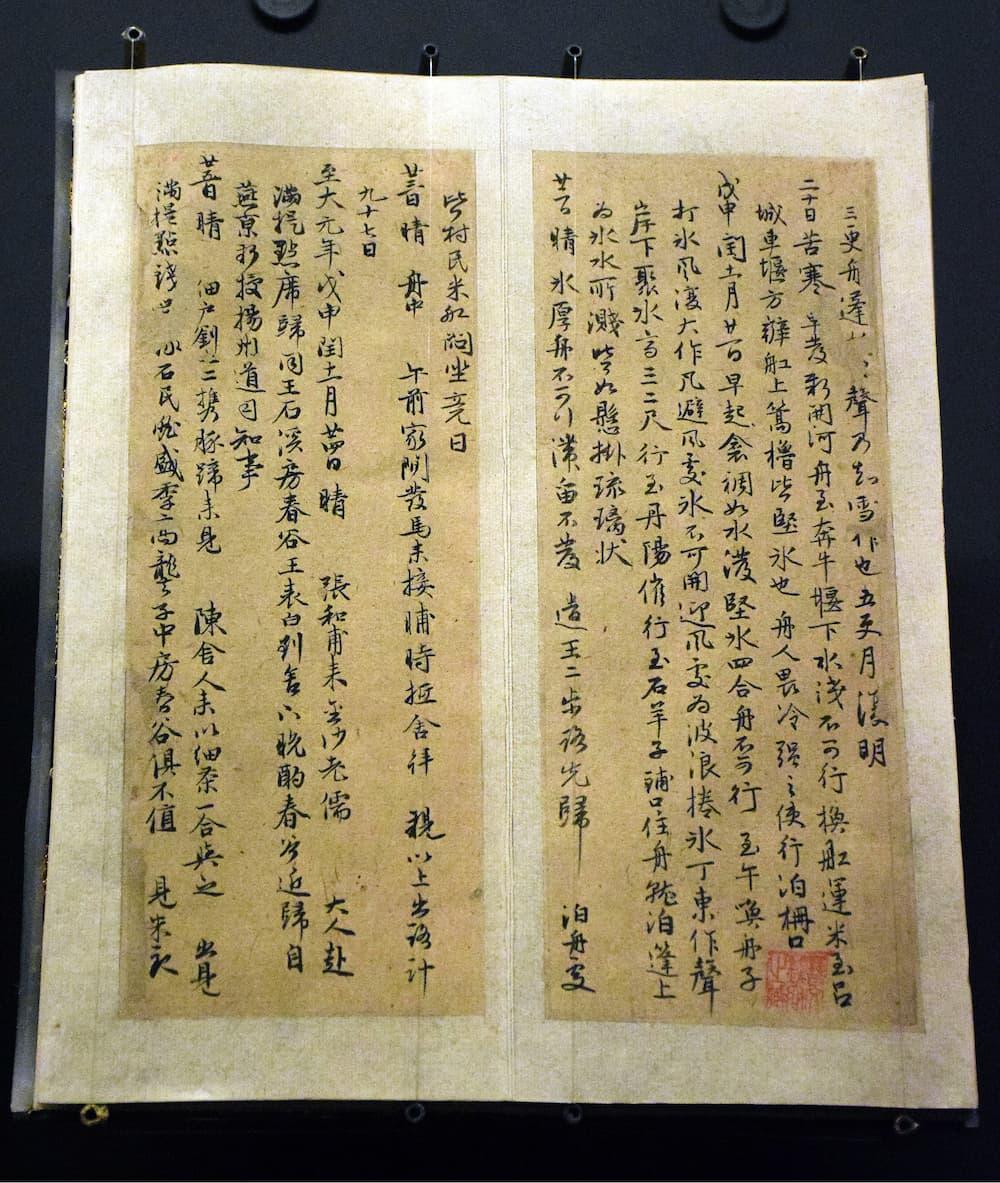 三更舟蓬山〻聲乃知雪作也五更月復明
二十日苦寒 早發新開河舟至奔牛堰下水淺不可行換舡運米至呂
城車堰方辦舡上篙櫓皆堅氷也 舟人畏冷强之使行泊柵口
戊申閏十一月廿一日早起衾裯如水潑堅氷四合舟不可行 至午喚舟子
打氷風復大作凡避風處氷不可開迎風處為波浪捲氷丁東作聲
岸下聚氷高三二尺行至丹陽催行至石羊子鋪口住舟艤泊蓬上
為氷水所濺皆如懸掛琉璃狀
廿二日晴 氷厚舟不可行滯留不發 遣王二步路先歸 泊舟處
皆村民米舡悶坐竟日
廿三日晴 舟中 午前家間發馬來接晡時抵舍拜 親以上出路計
九十七日
至大元年戊申閏十一月廿四日 晴 張和甫來 金沙老儒 大人赴
滿提點席歸同王石溪房春谷王表白到舍下晚酌春谷近歸自
燕京新授揚州道司知事
廿五日晴 佃戶劉二携豚蹄來見 陳舍人來以細茶一合與之 出見
滿提點錢 石民瞻盛季高龔子中房春谷俱不值 見朱